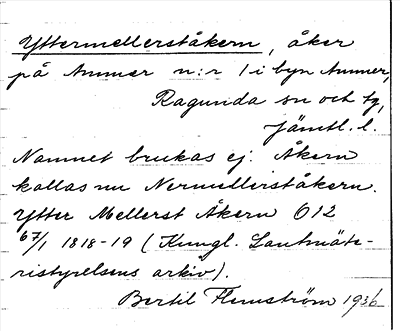 Yttermellerståkern, åker
på Ammer n:r 1 i byn Ammer,
Ragunda sn och tg,
Jämtl. l.
Namnet brukas ej. Åkern
kallas nu Nermellerståkern.
Ytter Mellerst Åkern Ö12
67/1 1818-19 (Kungl. Lantmäte-
ristyrelsens arkiv).
Bertil Flemström 1936